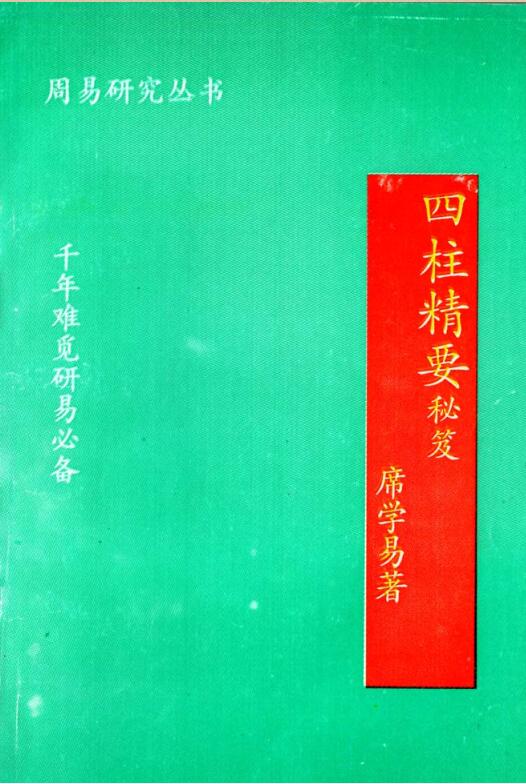 周易研究丛书
四柱精要秘笈
席学易著
千年难觅研易必备